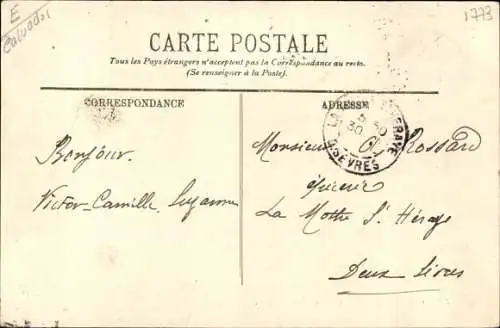 E
Calvados
1773
CARTE POSTALE
Tous les Pays étrangers n'acceptent pas la Correspondance au recto.
(Se renseigner à la Poste).
CORRESPONDANCE
ADRESSE
SEVRES
Bonjour.
Victor-Camille, Suzanne
Monsieur Rossard
épicerie
La Mothe St Héraye
Deux Sèvres